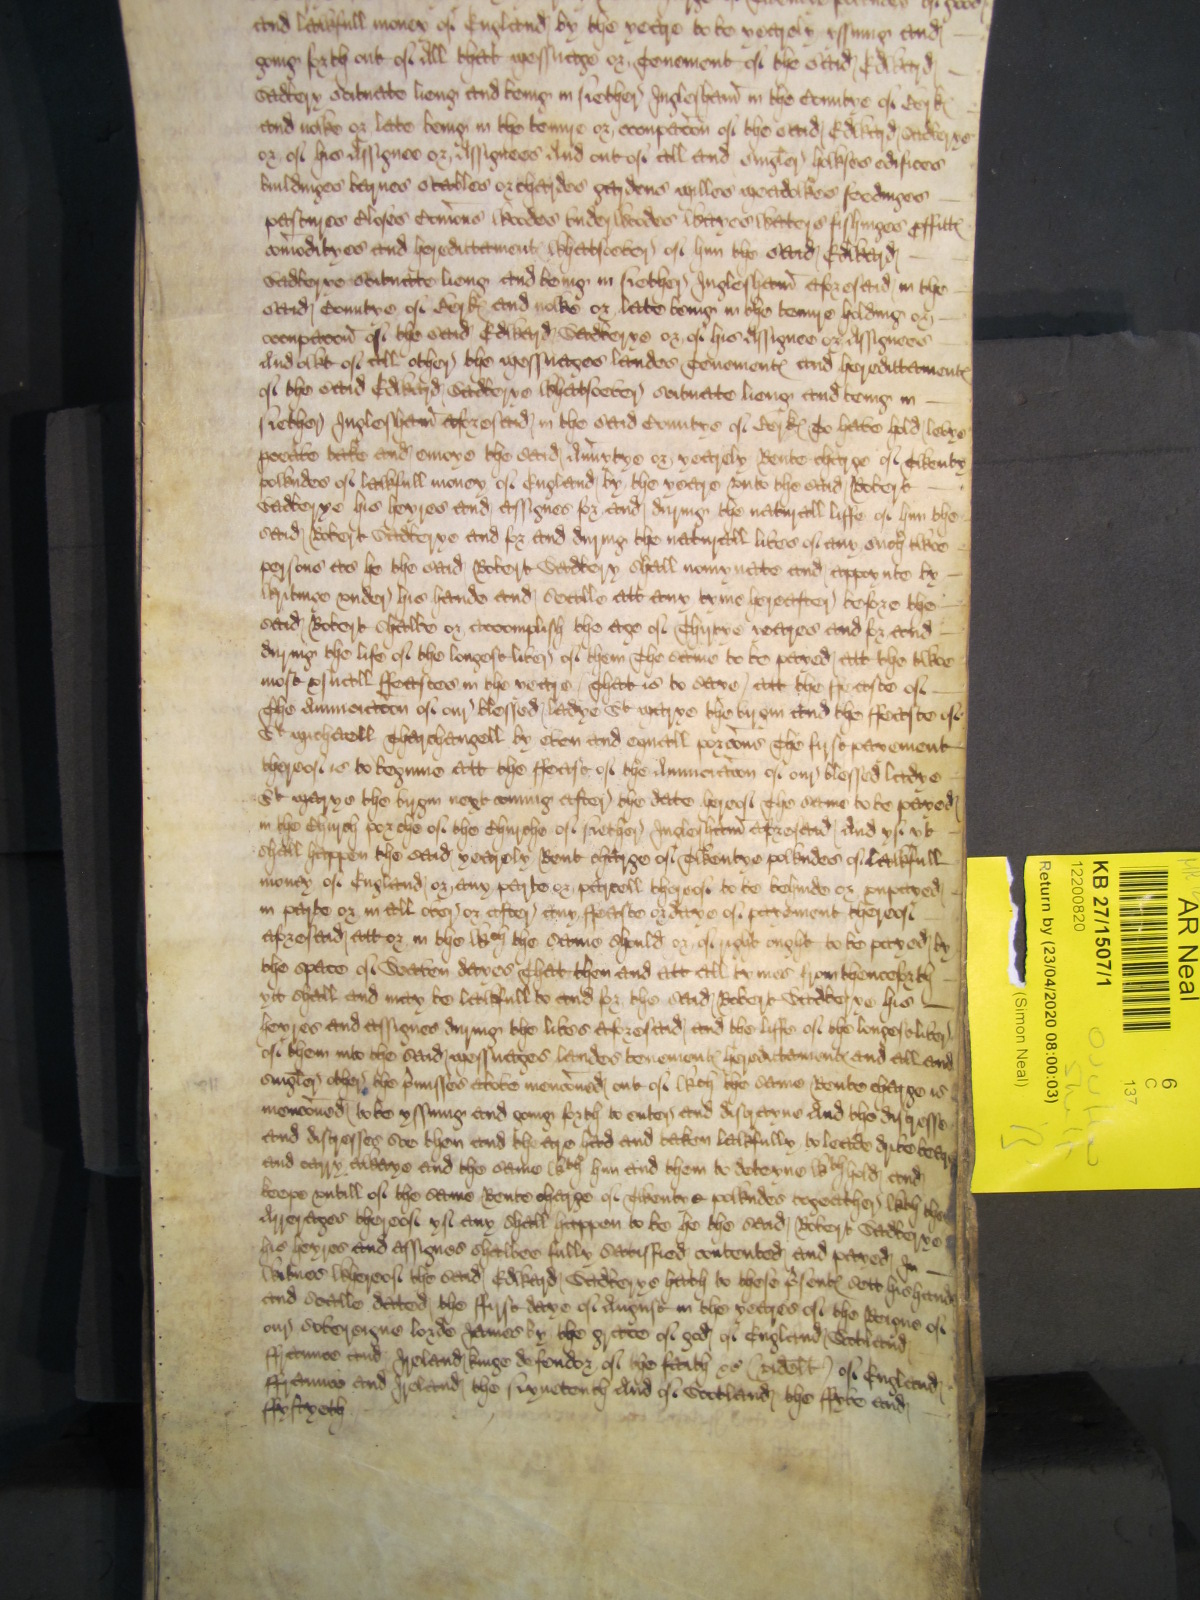 and lawfull money of England by the yeare to be yearely yssuing and
going forth out of All that messuage or Tenement of the said Edward
Sadlery scituate lieng and being in Nether Inglesham in the Countye of Berk
and nowe or late being in the tenure or occupacon of the said Edward Sadlerye
or of his Assignee or Assignees And out of all and singler howses edifices
buildinges barnes stables orchardes gardens milles meadowes feedinges
pastures Closes Comons Woodes underwoodes Wayes Waters fishinges proffitt
comodityes and hereditament Whatsoever of him the said Edward
Sadlerye scituate lieng and being in Nether Inglesham aforesaid in the
said Countye of Berk and nowe or late being in the tenure holding or
occupacon of the said Edward Sadlerye or of his Assignee or Assignees
And out of all other the messuages landes Tenement and hereditament
of the said Edward Sadlerye Whatsoever scituate lieng and being in
Nether Inglesham aforesaid in the said Countye of Berk To have hold levye
perceave take and enioye the said Annuytye or yearely Rente charge of Twentye
powndes of lawfull money of England by the yeare unto the said Robert
Sadlerye his heyres and assignes for and during the naturall liffe of him the
said Robert Sadlerye and for and during the naturall lives of any such twoe
persons as he the said Robert Sadlery shall nomynate and appoynte by
Writinge under his hande and Sealle att any tyme hereafter before the
said Robert shalbe or accomplish the age of Thirtye yeares and for and
during the life of the longest liver of them The same to be payed att the twoe
most usuall ffeastes in the yeare That is to saye att the ffeaste of
The Annunciacon of our blessed ladye St marye the virgin and the ffeaste of
St michaell Tharchangell by even and equall porcons The first payement
thereof is to beginne att the ffeast of the Annunciacon of our blessed Ladye
St marye the virgin next coming after the date hereof The same to be payed
in the Church porche of the Churche of Nether Inglesham aforesaid And yf yt
shall happen the said yearely Rent charge of Twentye powndes of lawfull
money of England or any parte or parcell thereof to be behinde or unpayed
in parte or in all over or after any ffeaste or daye of payement thereof
aforesaid att or in the Wch the same should or of right ought to be payed by
the space of Seaven dayes That then and att all tymes from thenceforth
yt shall and may be lawfull to and for the said Robert Sadlerye his
heyres and assignes during the lives aforesaid and the liffe of the longest liver
of them into the said messuages landes tenement hereditament and all and
singler other the prmisses above mencioned out of Wch the same Rente charge is
mencioned to be yssuing and going forth to enter and distrayne And the distresse
and distresses soe then and theare had and taken lawfully to leade drive beare
and carry awaye and the same Wth him and them to deteyne Wthhold and
keepe untill of the same Rente charge of Twentye powndes togeather With the
Arrerages thereof yf any shall happen to be he the said Robert Sadlerye
his heyres and assignes shalbee fully satisfied contented and payed In
Witnes Whereof the said Edward Sadlerye hath to these prsent sett his hande
and Sealle dated the ffirst daye of August in the yeares of the Reigne of
our Sovereigne lorde James by the grace of god of England Scotland
ffraunce and Ireland kinge defendor of the faith &c (videlt) of England
ffraunce and Ireland the sixneteenth And of Scotland the ffyve and
ffyftyeth
AR Neal
KB 27/1507/1
12200820
Return by (23/04/2020 08:00:03)
(Simon Neal)
6
C
137